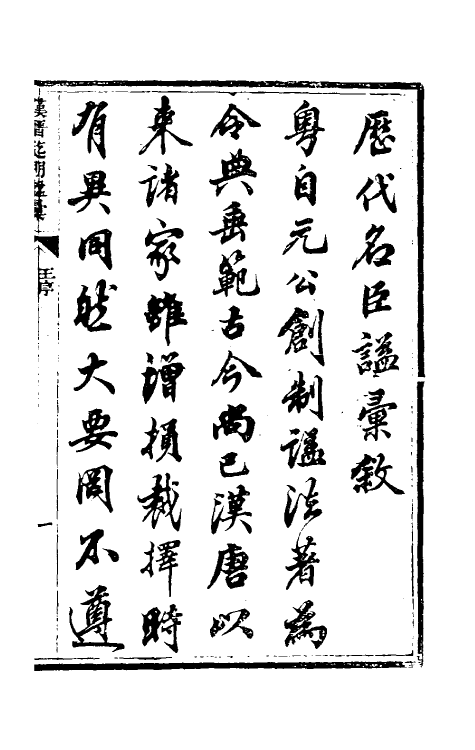 歷代名臣謚彙敘
粵自元公創制諡法著為
令典垂範古今尚已漢唐以
來諸家雖增損裁擇時
有異同然大要罔不遵
王序
一